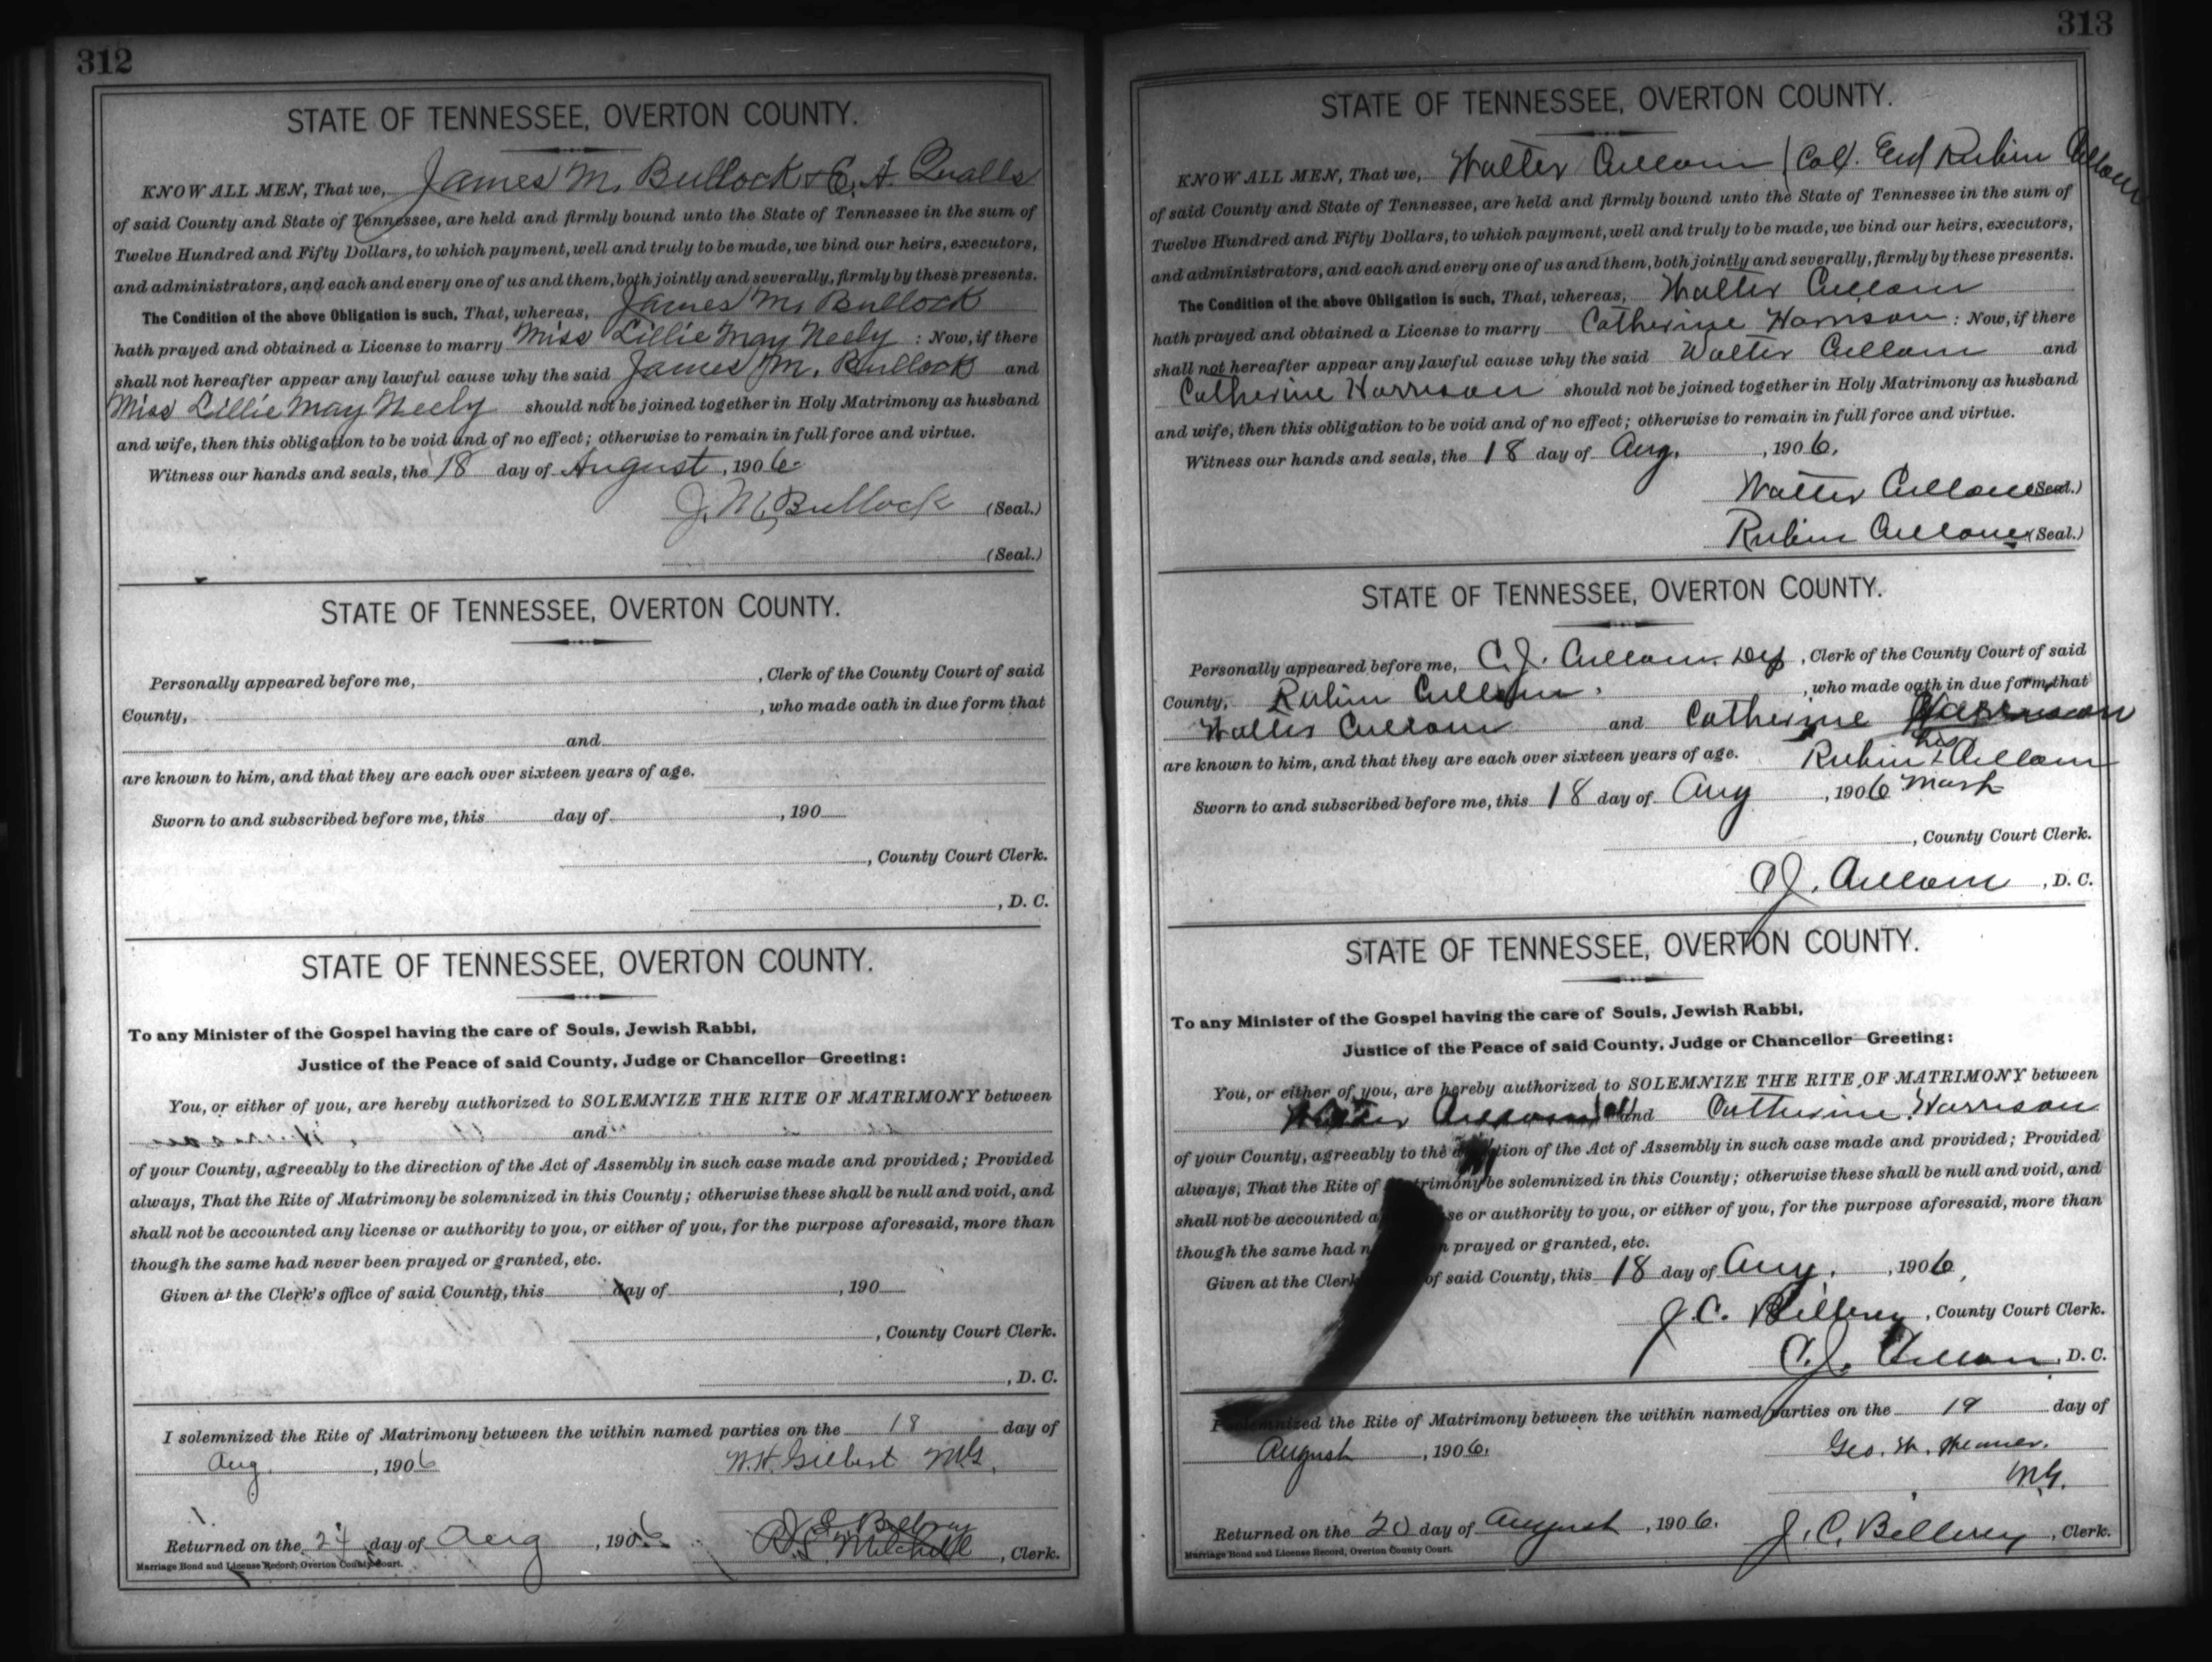 312
STATE OF TENNESSEE, OVERTON COUNTY.
KNOW ALL MEN, That we, James M. Bullock & E. A. Qualls
of said County and State of Tennessee, are held and firmly bound unto the State of Tennessee in the sum of
Twelve Hundred and Fifty Dollars, to which payment, well and truly to be made, we bind our heirs, executors,
and administrators, and each and every one of us and them, both jointly and severally, firmly by these presents.
The Condition of the above Obligation is such, That, whereas, James M. Bullock
hath prayed and obtained a License to marry Miss Lillie May Neely : Now, if there
shall not hereafter appear any lawful cause why the said James M. Bullock and
Miss Lillie May Neely should not be joined together in Holy Matrimony as husband
and wife, then this obligation to be void and of no effect; otherwise to remain in full force and virtue.
Witness our hands and seals, the 18 day of August, 1906
J. M. Bullock (Seal.)
(Seal.)
STATE OF TENNESSEE, OVERTON COUNTY.
Personally appeared before me, , Clerk of the County Court of said
County, , who made oath in due form that
and
are known to him, and that they are each over sixteen years of age.
Sworn to and subscribed before me, this day of , 190
, County Court Clerk.
, D. C.
STATE OF TENNESSEE, OVERTON COUNTY.
To any Minister of the Gospel having the care of Souls, Jewish Rabbi,
Justice of the Peace of said County, Judge or Chancellor—Greeting:
You, or either of you, are hereby authorized to SOLEMNIZE THE RITE OF MATRIMONY between
and
of your County, agreeably to the direction of the Act of Assembly in such case made and provided; Provided
always, That the Rite of Matrimony be solemnized in this County; otherwise these shall be null and void, and
shall not be accounted any license or authority to you, or either of you, for the purpose aforesaid, more than
though the same had never been prayed or granted, etc.
Given at the Clerk's office of said County, this day of , 190
, County Court Clerk.
, D. C.
I solemnized the Rite of Matrimony between the within named parties on the 18 day of
Aug. , 1906 W. H. Gilbert M.G.
Returned on the 24 day of Aug , 1906 Mitchell , Clerk.
Marriage Bond and License Record, Overton County Court.
313
STATE OF TENNESSEE, OVERTON COUNTY.
KNOW ALL MEN, That we, Walter Cullom (Col. End Rubin Cullom
of said County and State of Tennessee, are held and firmly bound unto the State of Tennessee in the sum of
Twelve Hundred and Fifty Dollars, to which payment, well and truly to be made, we bind our heirs, executors,
and administrators, and each and every one of us and them, both jointly and severally, firmly by these presents.
The Condition of the above Obligation is such, That, whereas, Walter Cullom
hath prayed and obtained a License to marry Catherine Harrison : Now, if there
shall not hereafter appear any lawful cause why the said Walter Cullom and
Catherine Harrison should not be joined together in Holy Matrimony as husband
and wife, then this obligation to be void and of no effect; otherwise to remain in full force and virtue.
Witness our hands and seals, the 18 day of Aug. , 1906.
Walter Cullom (Seal.)
Rubin Cullom (Seal.)
STATE OF TENNESSEE, OVERTON COUNTY.
Personally appeared before me, C. J. Cullom Dep , Clerk of the County Court of said
County, Rubin Cullom , who made oath in due form, that
Walter Cullom and Catherine Harrison
are known to him, and that they are each over sixteen years of age. Rubin his x Cullom
Sworn to and subscribed before me, this 18 day of Aug , 1906 mark
, County Court Clerk.
C J. Cullom , D. C.
STATE OF TENNESSEE, OVERTON COUNTY.
To any Minister of the Gospel having the care of Souls, Jewish Rabbi,
Justice of the Peace of said County, Judge or Chancellor—Greeting:
You, or either of you, are hereby authorized to SOLEMNIZE THE RITE OF MATRIMONY between
Walter Cullom Col and Catherine Harrison
of your County, agreeably to the direction of the Act of Assembly in such case made and provided; Provided
always, That the Rite of Matrimony be solemnized in this County; otherwise these shall be null and void, and
shall not be accounted a se or authority to you, or either of you, for the purpose aforesaid, more than
though the same had n prayed or granted, etc.
Given at the Clerk of said County, this 18 day of Aug. , 1906,
J. C. Bilbrey , County Court Clerk.
C. J. Cullom , D. C.
I solemnized the Rite of Matrimony between the within named parties on the 19 day of
August , 1906. Geo. W.
M.G.
Returned on the 20 day of August , 1906. J. C. Bilbrey , Clerk.
Marriage Bond and License Record, Overton County Court.